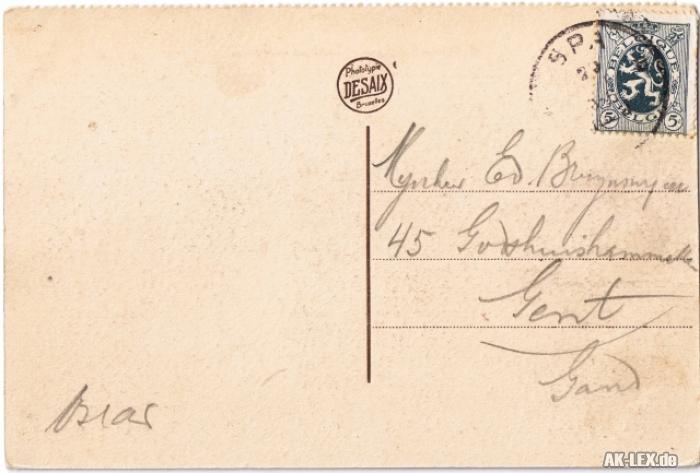 Phototypie
DESAIX
Bruxelles
SPA
BELGIQUE
5 BELGIË 5
Mynheer Ed.
45 Godshuishammeke
Gent
Gand
Oscar
AK-LEX.de